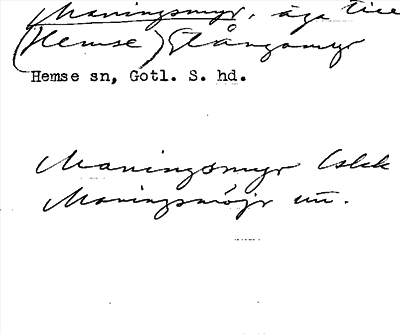 Maningsmyr, äga till
(Hemse) Stångsmyr
Hemse sn, Gotl. S. hd.
Maningsmyr
Maningsmöjr un.